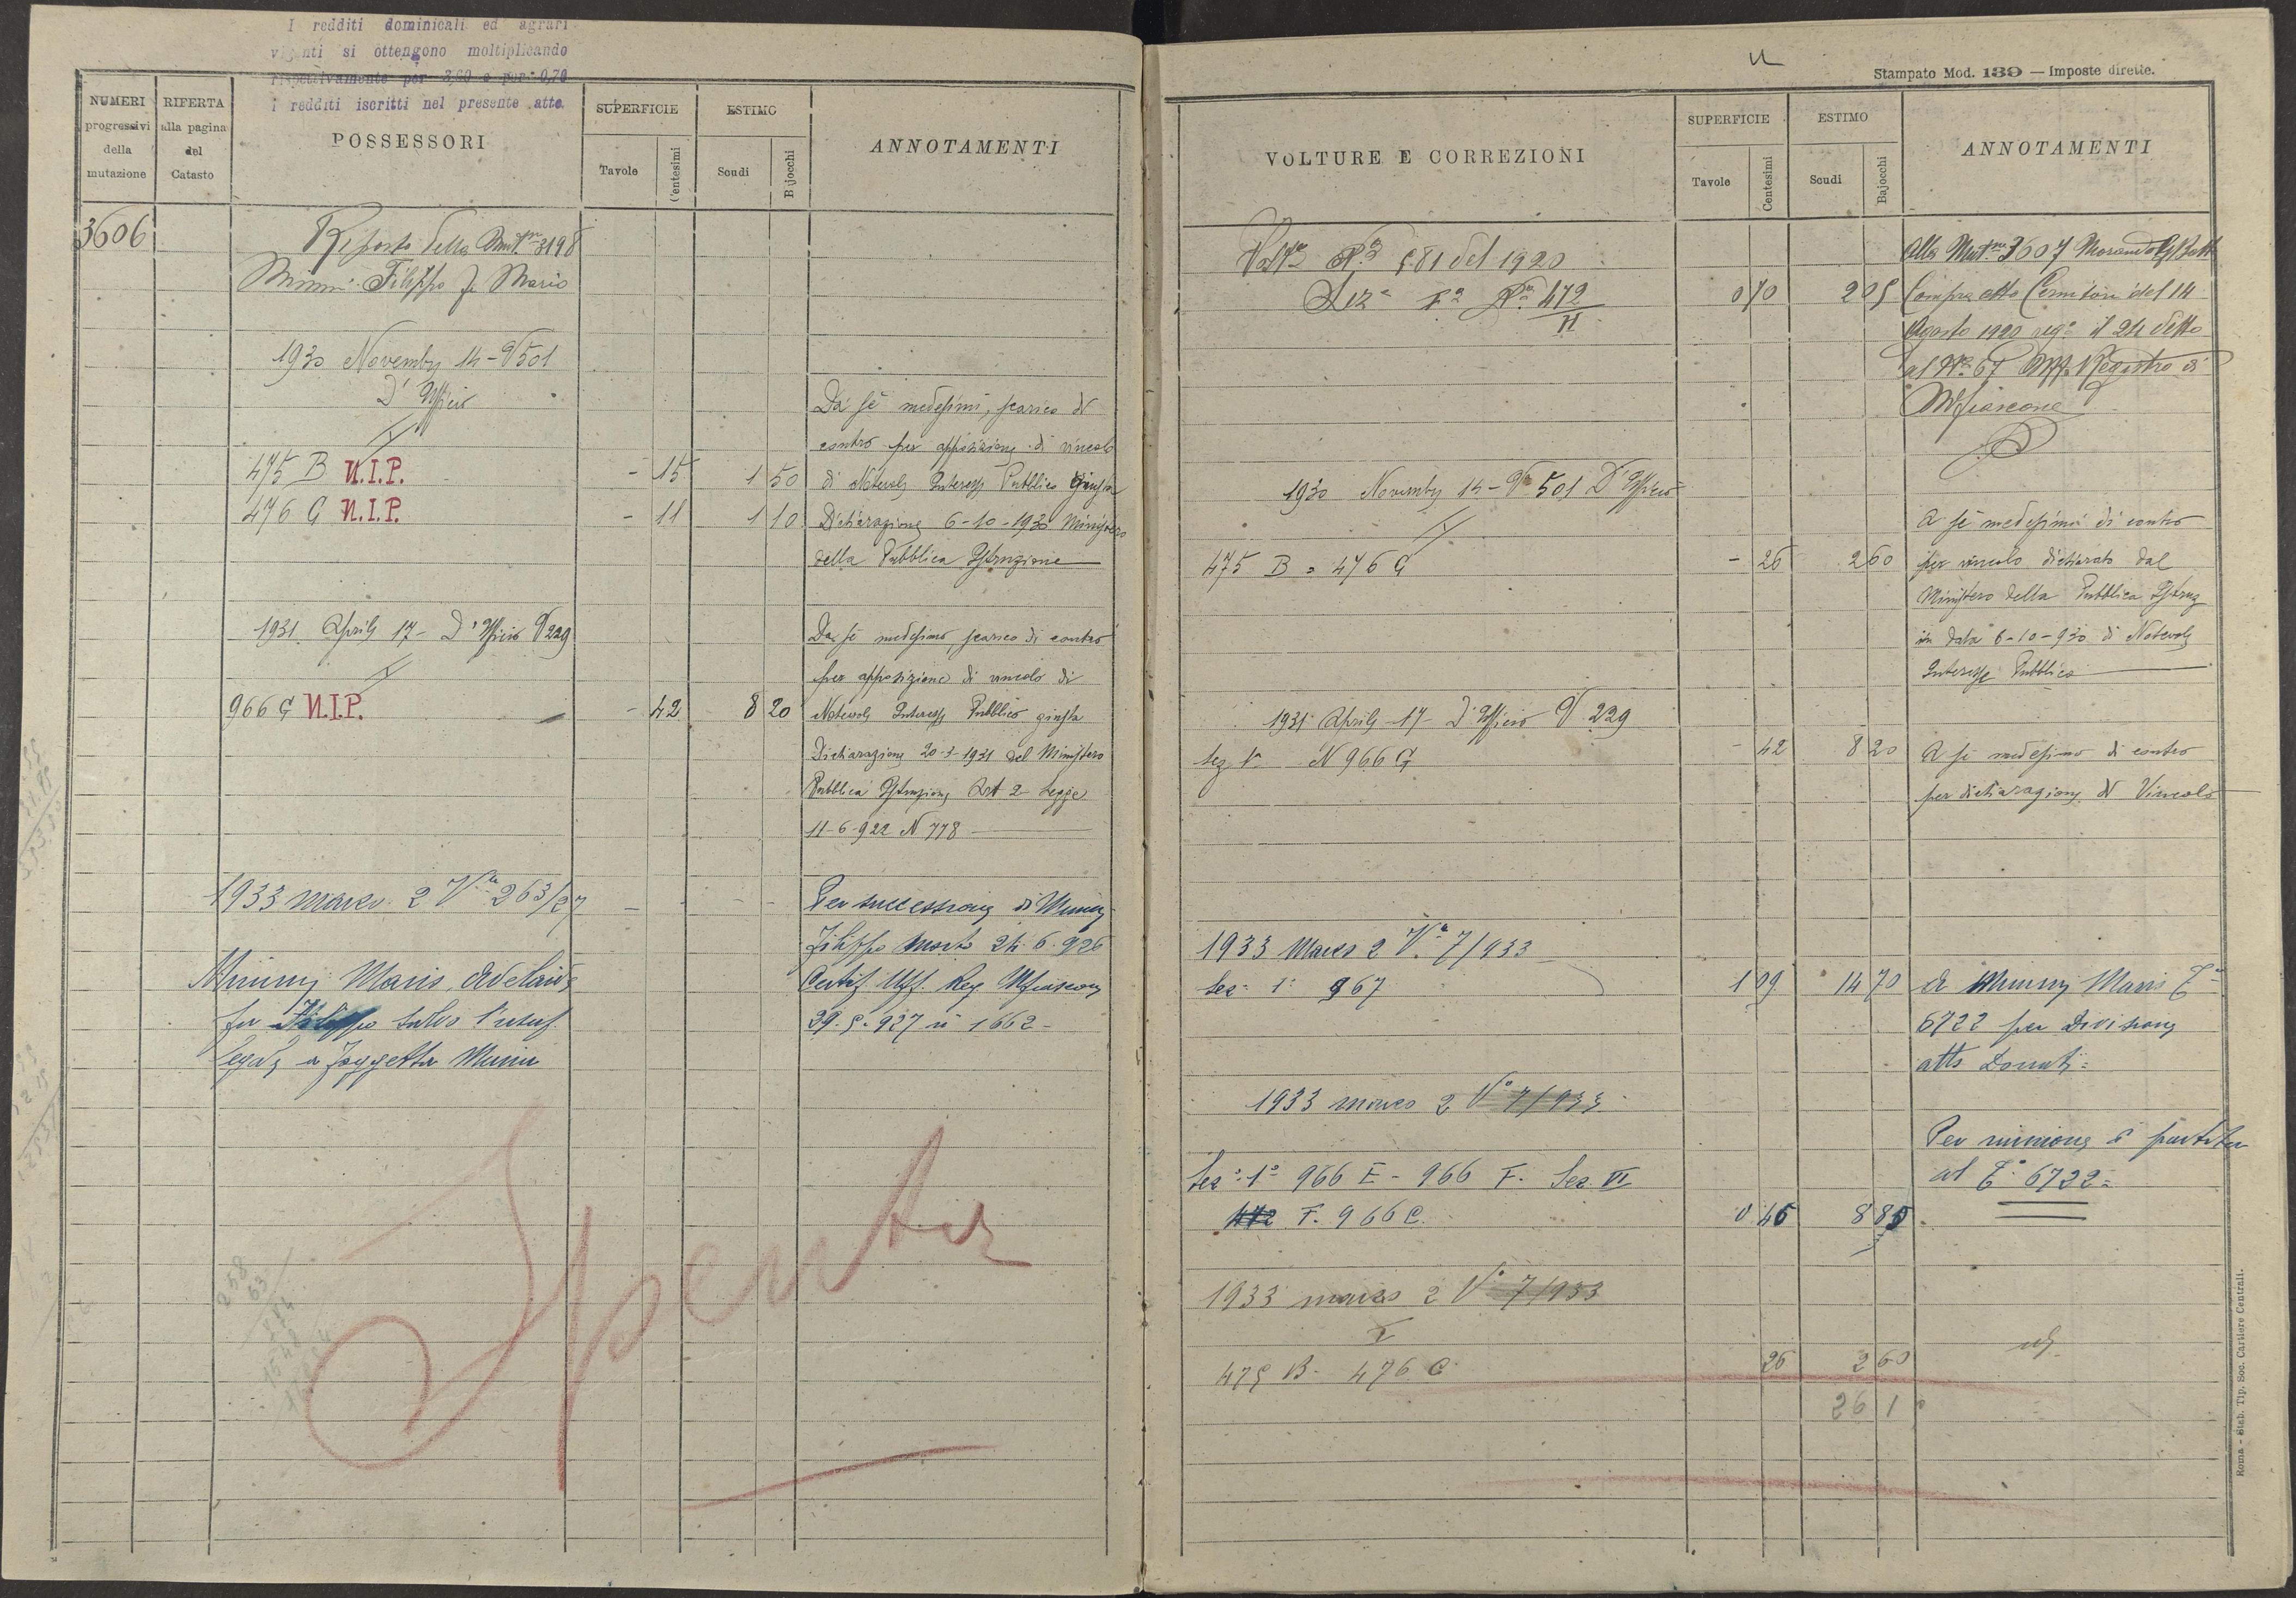 I redditi dominicali ed agrari
vigenti si ottengono moltiplicando
rispettivamente per 3,60 e per 0,70
i redditi iscritti nel presente atto.
NUMERI progressivi della mutazione
RIFERTA alla pagina del Catasto
POSSESSORI
SUPERFICIE
Tavole
Centesimi
ESTIMO
Scudi
Bajocchi
ANNOTAMENTI
3606
Riporto della Mut.ne 3198
Minni Filippo fu Mario
1930 Novembre 14 - V 501
D'Ufficio
Da sè medesimi, scarico di
contro per apposizione di vincolo
475 B N.I.P. - 15 1 50 di Notevole Interesse Pubblico giusta
476 G N.I.P. - 11 1 10 Dichiarazione 6-10-1930 Ministero
della Pubblica Istruzione
1931 Aprile 17 - D'Ufficio V 229
Da sè medesimo, scarico di contro
per apposizione di vincolo di
966 G N.I.P. - 42 8 20 Notevole Interesse Pubblico giusta
Dichiarazione 20-3-1931 del Ministero
Pubblica Istruzione Art 2 Legge
11-6-922 N 778
1933 marzo 2 V.ra 263/27
Per successione di
Filippo morto 24.6.926
Certif. Uff. Reg. Mfiascone
29.5.927 n 1662
fu Filippo salvo l'usuf.
legale a
Spenta
Stampato Mod. 139 — Imposte dirette.
VOLTURE E CORREZIONI
SUPERFICIE
Tavole
Centesimi
ESTIMO
Scudi
Bajocchi
ANNOTAMENTI
581 del 1920
Alla Mut.ne 3607
Sez.e I.a N.o 472/H 0 70 2 05 Compra atto del 14
Agosto 1920 reg.o il 24 detto
al N.o 67 Uff. Registro di
Mfiascone
1930 Novembre 14 - V 501 D'Ufficio
A sè medesimi di contro
475 B = 476 G - 26 2 60 per vincolo dichiarato dal
Ministero della Pubblica Istruz
in data 6-10-930 di Notevole
Interesse Pubblico
1931 Aprile 17 - D'Ufficio V 229
Sez 1a N 966 G - 42 8 20 A sè medesimo di contro
per dichiarazione di Vincolo
1933 Marzo 2 V.a 7/933
Sez: 1: 967 1 09 14 70 a
6722 per Divisione
atto Donati =
1933 marzo 2 V.a 7/933
Per riunione di partita
al 6722 =
Sez: 1a 966 E - 966 F. Sez VI
472 F. 966 C. 0 46 8 85
1933 marzo 2 V.a 7/933
I
475 B - 476 C 26 2 60
26 1
Roma - Stab. Tip. Soc. Cartiere Centrali.